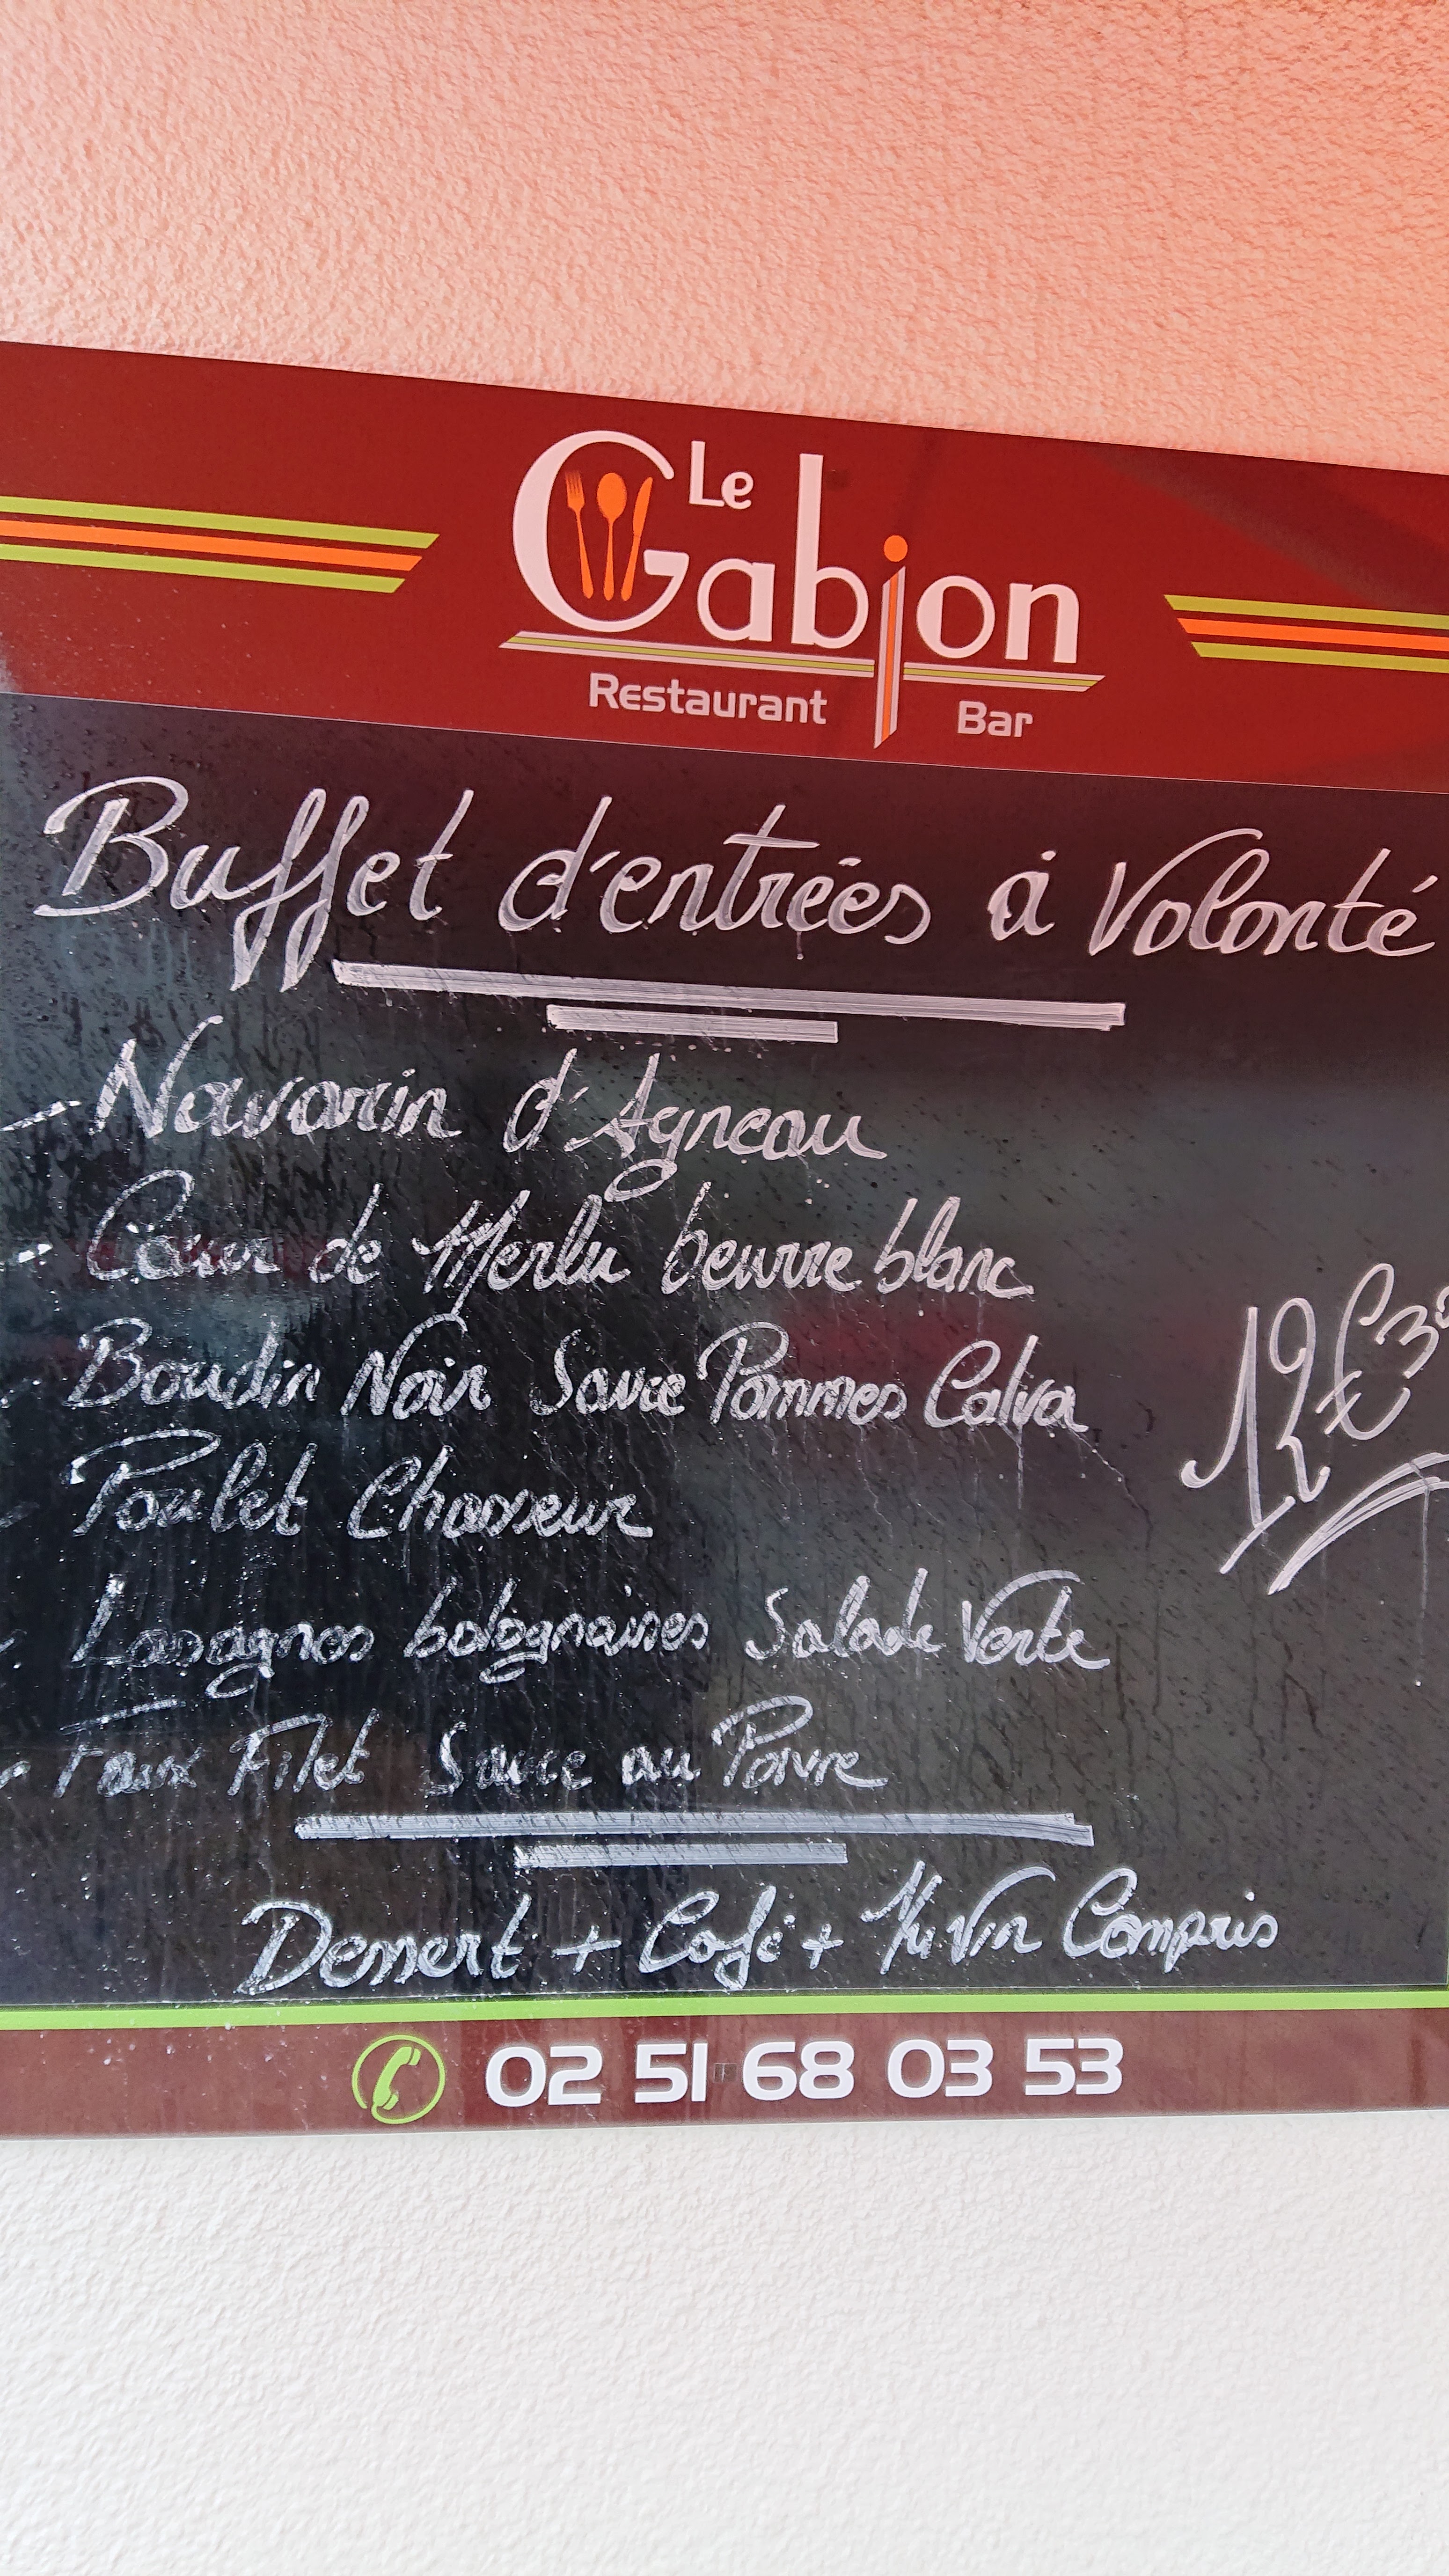 Le
Gabion
Restaurant Bar
Buffet d'entrées à Volonté
- Navarin d'Agneau
- Cœur de Merlu beurre blanc
- Boudin Noir Sauce Pommes Calva
- Poulet Chasseur
12€30
- Lasagnes bolognaises Salade Verte
- Faux Filet Sauce au Poivre
Dessert + Café + 1/4 Vin Compris
02 51 68 03 53